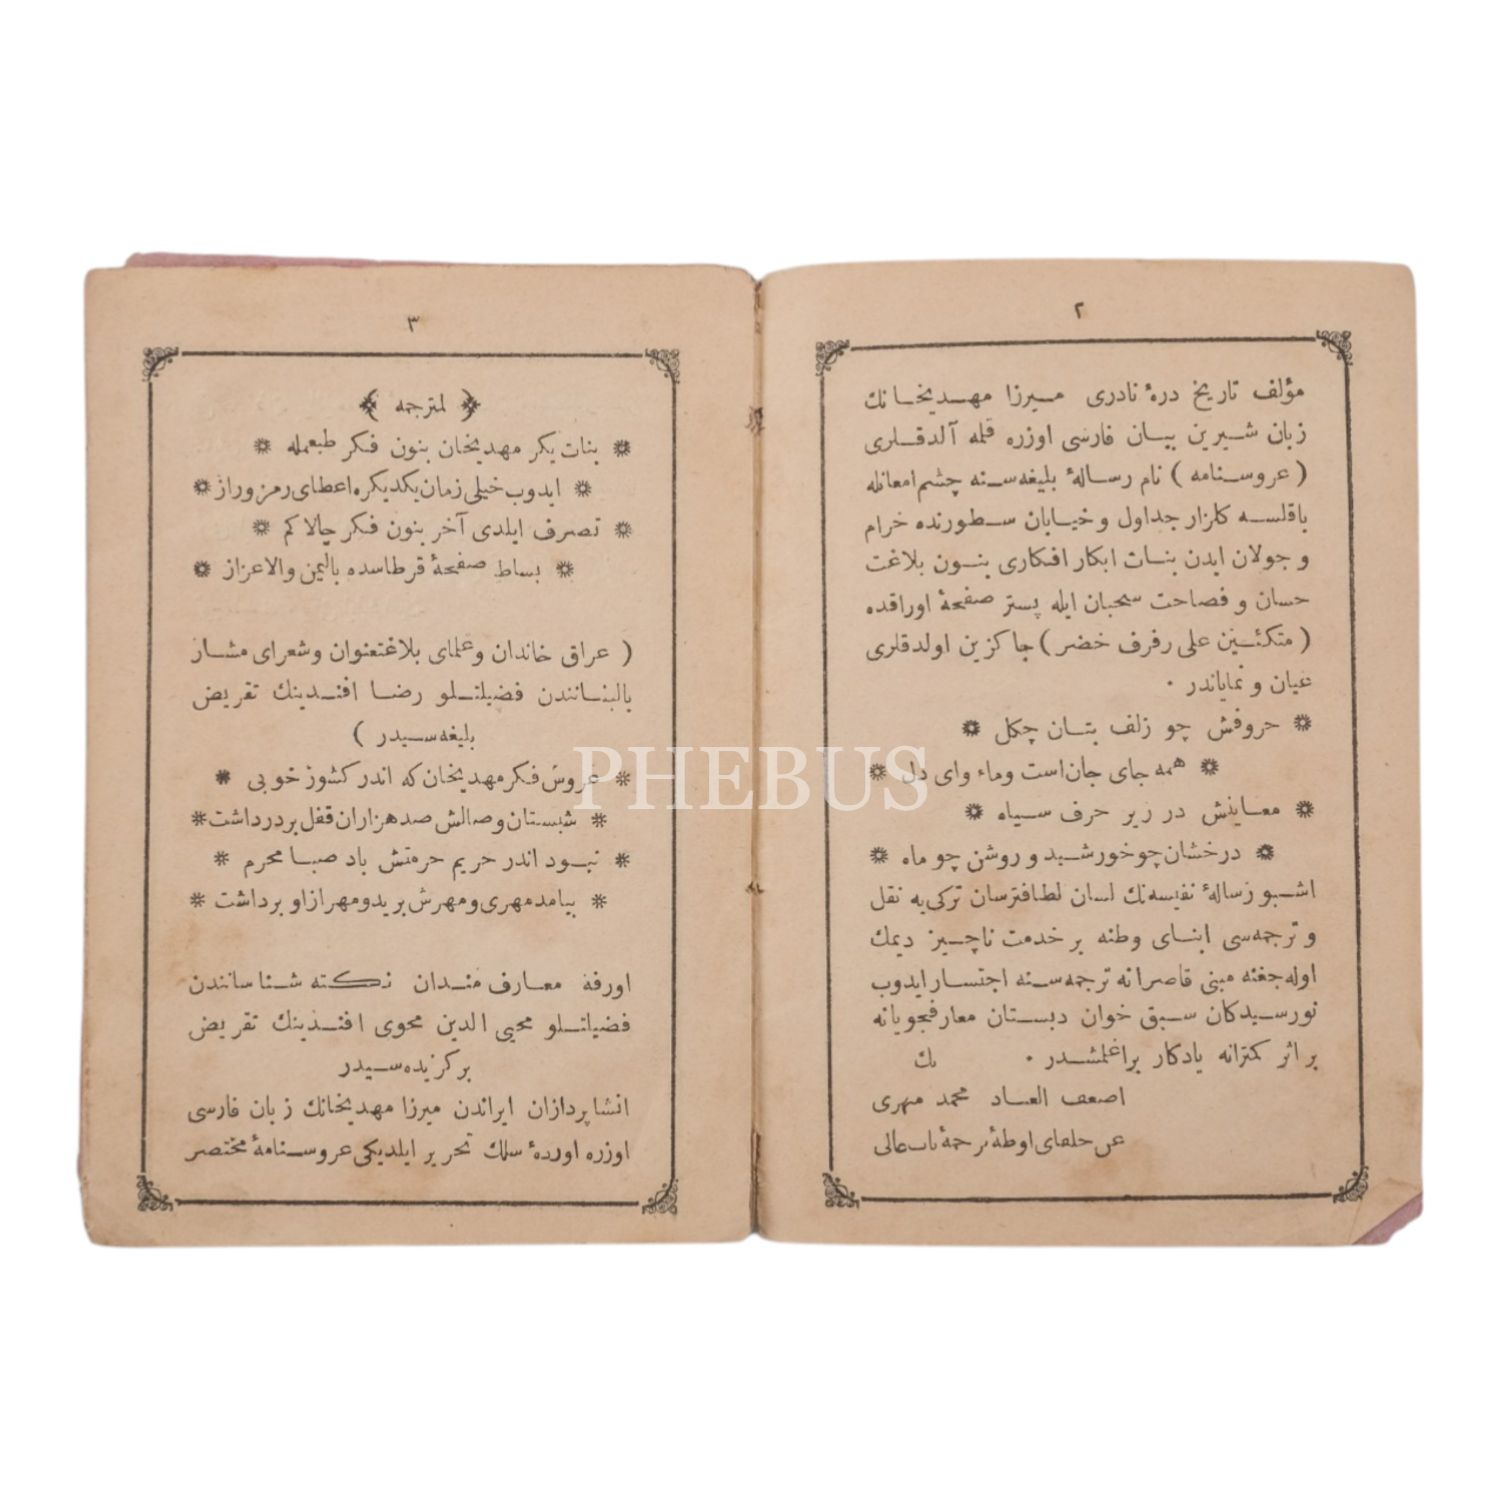 ٢
مؤلف تاریخ درۀ نادری میرزا مهدیخانك
زبان شیرین بیان فارسی اوزره قلمه آلدقلری
( عروسنامه ) نام رسالۀ بلیغه‌سنه چشم امعانله
باقلسه کلزار جداول و خیابان سطورنده خرام
و جولان ایدن بنات ابکار افکاری بنون بلاغت
حسان و فصاحت سحبان ایله پستر صفحۀ اوراقده
( متكئین علی رفرف خضر ) جاکزین اولدقلری
عیان و نمایاندر ۰
❋ حروفش چو زلف بتان چکل ❋
❋ همه جای جان است وماء وای دل ❋
❋ معاینش در زیر حرف سیاه ❋
❋ درخشان چو خورشید و روشن چو ماه ❋
اشبو رسالۀ نفیسه‌نك لسان لطافترسان ترکی‌یه نقل
و ترجمه‌سی ابنای وطنه بر خدمت ناچیز دیمك
اوله‌جغنه مبنی قاصرانه ترجمه‌سنه اجتسار ایدوب
نورسیدکان سبق خوان دبستان معارفجویانه
بر اثر کمترانه یادکار براغلمشدر ۰
اضعف العباد محمد مهری
عن خلفای اوطۀ ترجمۀ باب عالی
٣
﴿ لمترجمه ﴾
❋ بنات یکر مهدیخان بنون فکر طبعمله ❋
❋ ایدوب خیلی زمان یکدیکره اعطای رمز وراز ❋
❋ تصرف ایلدی آخر بنون فکر چالاکم ❋
❋ بساط صفحۀ قرطاسده بالیمن والاعزاز ❋
( عراق خاندان وعلمای بلاغتعنوان وشعرای مشار
بالبنانندن فضیلتلو رضا افندینك تقریض
بلیغه‌سیدر )
❋ عروس فکر مهدیخان که اندر کشور خوبی ❋
❋ شبستان وصالش صد هزاران قفل بر در داشت ❋
❋ نبود اندر حریم حرمتش باد صبا محرم ❋
❋ بیامد مهری ومهرش برید ومهر ازاو برداشت ❋
اورفه معارف مندان نکته شناسانندن
فضیلتلو محیی الدین محوی افندینك تقریض
برکزیده‌سیدر
انشاپردازان ایراندن میرزا مهدیخانك زبان فارسی
اوزره اوردۀ سلك تحریر ایلدیکی عروسنامۀ مختصر
PHEBUS